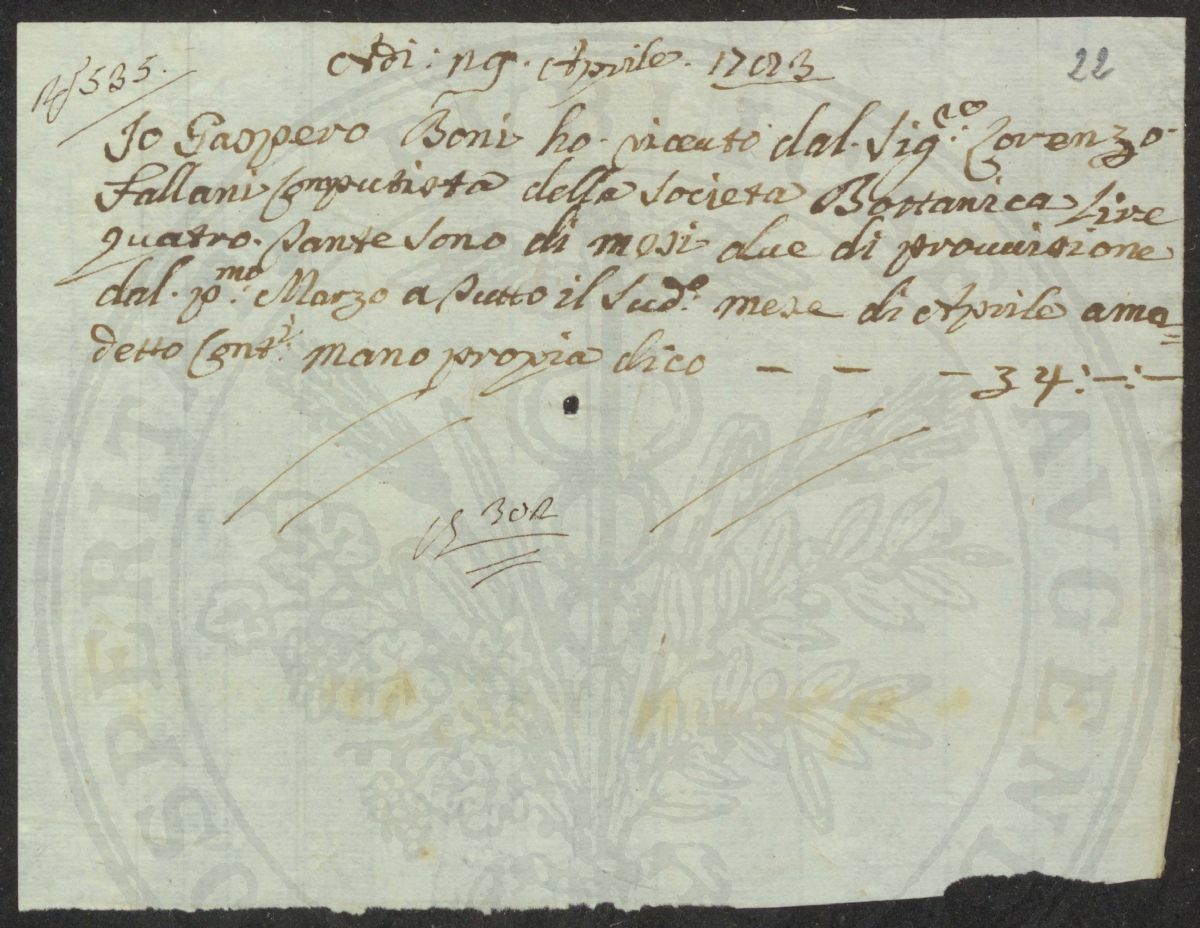 22
Adi: 29. Aprile. 1783
535.
Io Gaspero Boni ho. riceuto dal. Sig.ro Lorenzo.
Fallani Computista della Societa Bottanica Lire
quatro. tante sono di mesi due di provuisione
dal. p.mo Marzo a tutto il Sud.o mese di Aprile a me
detto Cont.i mano propia dico — — — 4:—:—
302